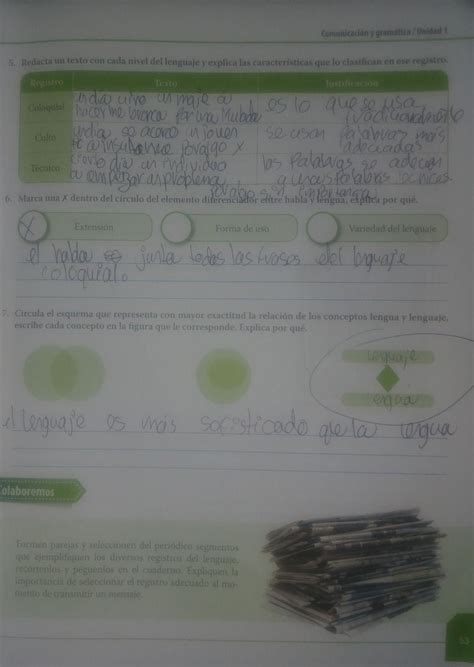 Comunicación y gramática / Unidad 1
5. Redacta un texto con cada nivel del lenguaje y explica las características que lo clasifican en ese registro.
Registro Texto Justificación
Coloquial un dia vino un maje a es lo que se usa
hacerme bronca por una
Culto un dia se acerco un joven se usan palabras más
a x adecuadas
Técnico un dia un individuo las palabras se adecuan
a empezar un problema a unas palabras tecnicas
6. Marca una X dentro del círculo del elemento diferenciador entre habla y lengua, explica por qué.
X Extensión Forma de uso Variedad del lenguaje
el habla junta todas las frases del lenguaje
coloquial.
7. Circula el esquema que representa con mayor exactitud la relación de los conceptos lengua y lenguaje,
escribe cada concepto en la figura que le corresponde. Explica por qué.
lenguaje
lengua
el lenguaje es más sofisticado que la lengua
Colaboremos
Formen parejas y seleccionen del periódico segmentos
que ejemplifiquen los diversos registros del lenguaje,
recórtenlos y péguenlos en el cuaderno. Expliquen la
importancia de seleccionar el registro adecuado al mo-
mento de transmitir un mensaje.
53